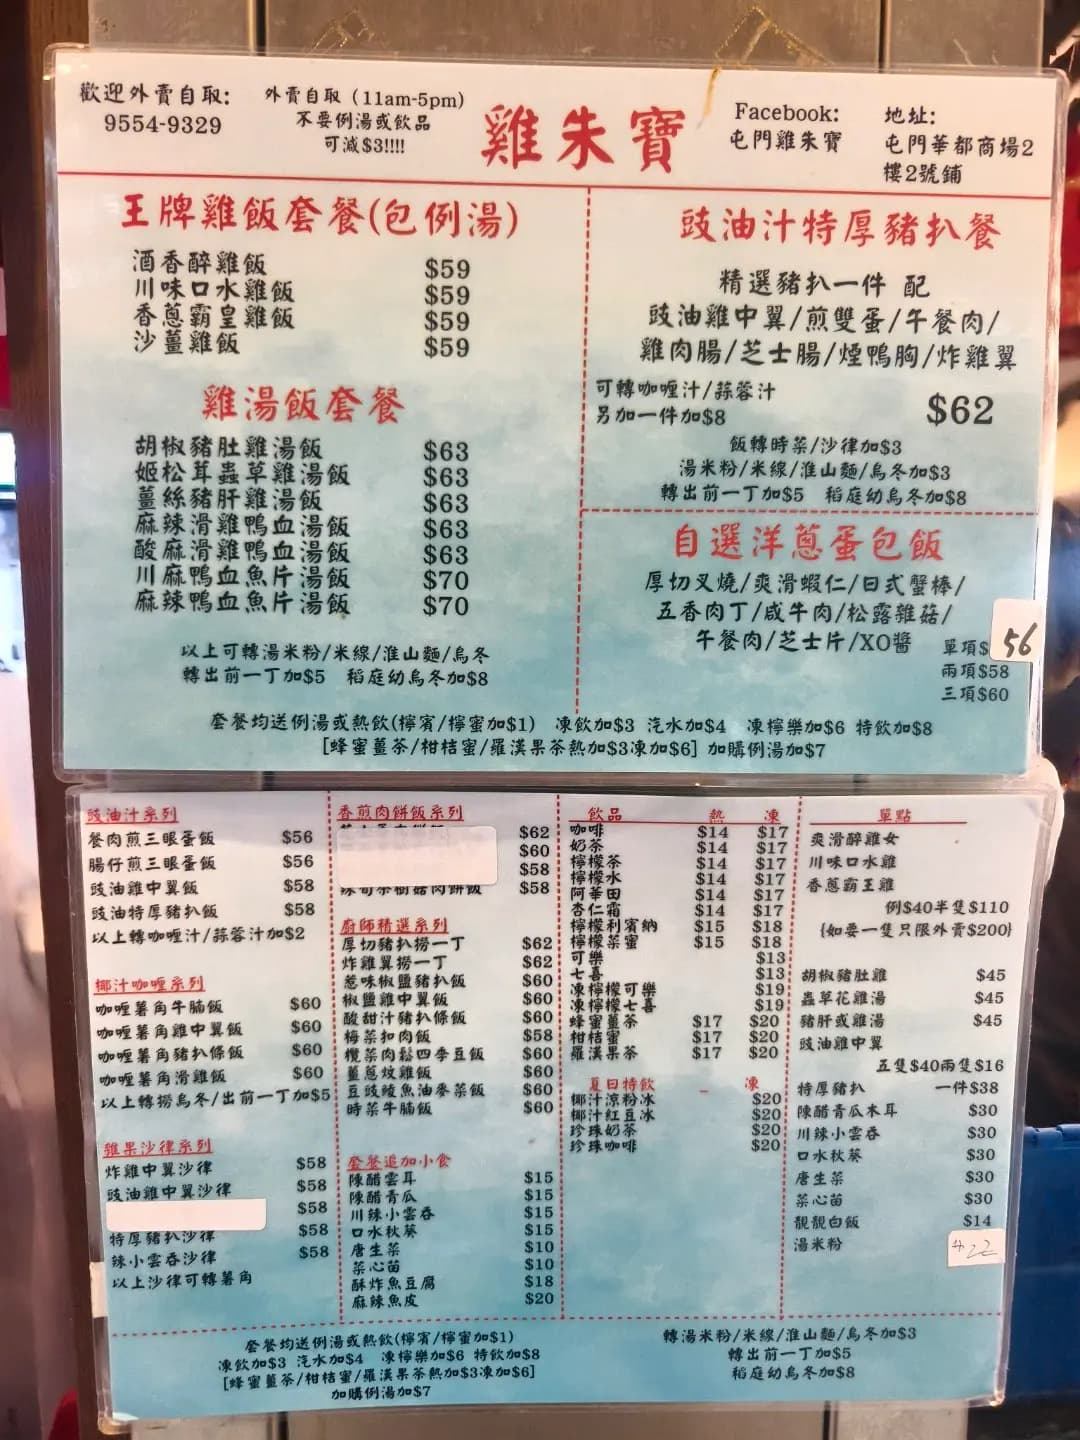 歡迎外賣自取:
9554-9329
外賣自取 (11am-5pm)
不要例湯或飲品
可減$3!!!!
雞朱寶
Facebook:
屯門雞朱寶
地址:
屯門華都商場2
樓2號鋪
王牌雞飯套餐(包例湯)
酒香醉雞飯 $59
川味口水雞飯 $59
香蔥霸皇雞飯 $59
沙薑雞飯 $59
雞湯飯套餐
胡椒豬肚雞湯飯 $63
姬松茸蟲草雞湯飯 $63
薑絲豬肝雞湯飯 $63
麻辣滑雞鴨血湯飯 $63
酸麻滑雞鴨血湯飯 $63
川麻鴨血魚片湯飯 $70
麻辣鴨血魚片湯飯 $70
以上可轉湯米粉/米線/淮山麵/烏冬
轉出前一丁加$5 稻庭幼烏冬加$8
豉油汁特厚豬扒餐
精選豬扒一件 配
豉油雞中翼/煎雙蛋/午餐肉/
雞肉腸/芝士腸/煙鴨胸/炸雞翼
可轉咖喱汁/蒜蓉汁
另加一件加$8
$62
飯轉時菜/沙律加$3
湯米粉/米線/淮山麵/烏冬加$3
轉出前一丁加$5 稻庭幼烏冬加$8
自選洋蔥蛋包飯
厚切叉燒/爽滑蝦仁/日式蟹棒/
五香肉丁/咸牛肉/松露雜菇/
午餐肉/芝士片/XO醬
單項$ 56
兩項$58
三項$60
套餐均送例湯或熱飲(檸賓/檸蜜加$1) 凍飲加$3 汽水加$4 凍檸樂加$6 特飲加$8
[蜂蜜薑茶/柑桔蜜/羅漢果茶熱加$3凍加$6] 加購例湯加$7
豉油汁系列
餐肉煎三眼蛋飯 $56
腸仔煎三眼蛋飯 $56
豉油雞中翼飯 $58
豉油特厚豬扒飯 $58
以上轉咖喱汁/蒜蓉汁加$2
椰汁咖喱系列
咖喱薯角牛腩飯 $60
咖喱薯角雞中翼飯 $60
咖喱薯角豬扒條飯 $60
咖喱薯角滑雞飯 $60
以上轉撈烏冬/出前一丁加$5
雜果沙律系列
炸雞中翼沙律 $58
豉油雞中翼沙律 $58
$58
特厚豬扒沙律 $58
辣小雲吞沙律 $58
以上沙律可轉薯角
香煎肉餅飯系列
$62
$60
$58
$58
廚師精選系列
厚切豬扒撈一丁 $62
炸雞翼撈一丁 $62
惹味椒鹽豬扒飯 $60
椒鹽雞中翼飯 $60
酸甜汁豬扒條飯 $60
梅菜扣肉飯 $58
欖菜肉鬆四季豆飯 $60
薑蔥炆雞飯 $60
豆豉鯪魚油麥菜飯 $60
時菜牛腩飯 $60
套餐追加小食
陳醋雲耳 $15
陳醋青瓜 $15
川辣小雲吞 $15
口水秋葵 $15
唐生菜 $10
菜心苗 $10
酥炸魚豆腐 $18
麻辣魚皮 $20
飲品 熱 凍
咖啡 $14 $17
奶茶 $14 $17
檸檬茶 $14 $17
檸檬水 $14 $17
阿華田 $14 $17
杏仁霜 $14 $17
檸檬利賓納 $15 $18
檸檬菜蜜 $15 $18
可樂 $13
七喜 $13
凍檸檬可樂 $19
凍檸檬七喜 $19
蜂蜜薑茶 $17 $20
柑桔蜜 $17 $20
羅漢果茶 $17 $20
夏日特飲 凍
椰汁涼粉冰 $20
椰汁紅豆冰 $20
珍珠奶茶 $20
珍珠咖啡 $20
單點
爽滑醉雞女
川味口水雞
香蔥霸王雞
例$40半隻$110
{如要一隻只限外賣$200}
胡椒豬肚雞 $45
蟲草花雞湯 $45
豬肝或雞湯 $45
豉油雞中翼
五隻$40兩隻$16
特厚豬扒 一件$38
陳醋青瓜木耳 $30
川辣小雲吞 $30
口水秋葵 $30
唐生菜 $30
菜心苗 $30
靚靚白飯 $14
湯米粉 $22
套餐均送例湯或熱飲(檸賓/檸蜜加$1)
凍飲加$3 汽水加$4 凍檸樂加$6 特飲加$8
[蜂蜜薑茶/柑桔蜜/羅漢果茶熱加$3凍加$6]
加購例湯加$7
轉湯米粉/米線/淮山麵/烏冬加$3
轉出前一丁加$5
稻庭幼烏冬加$8